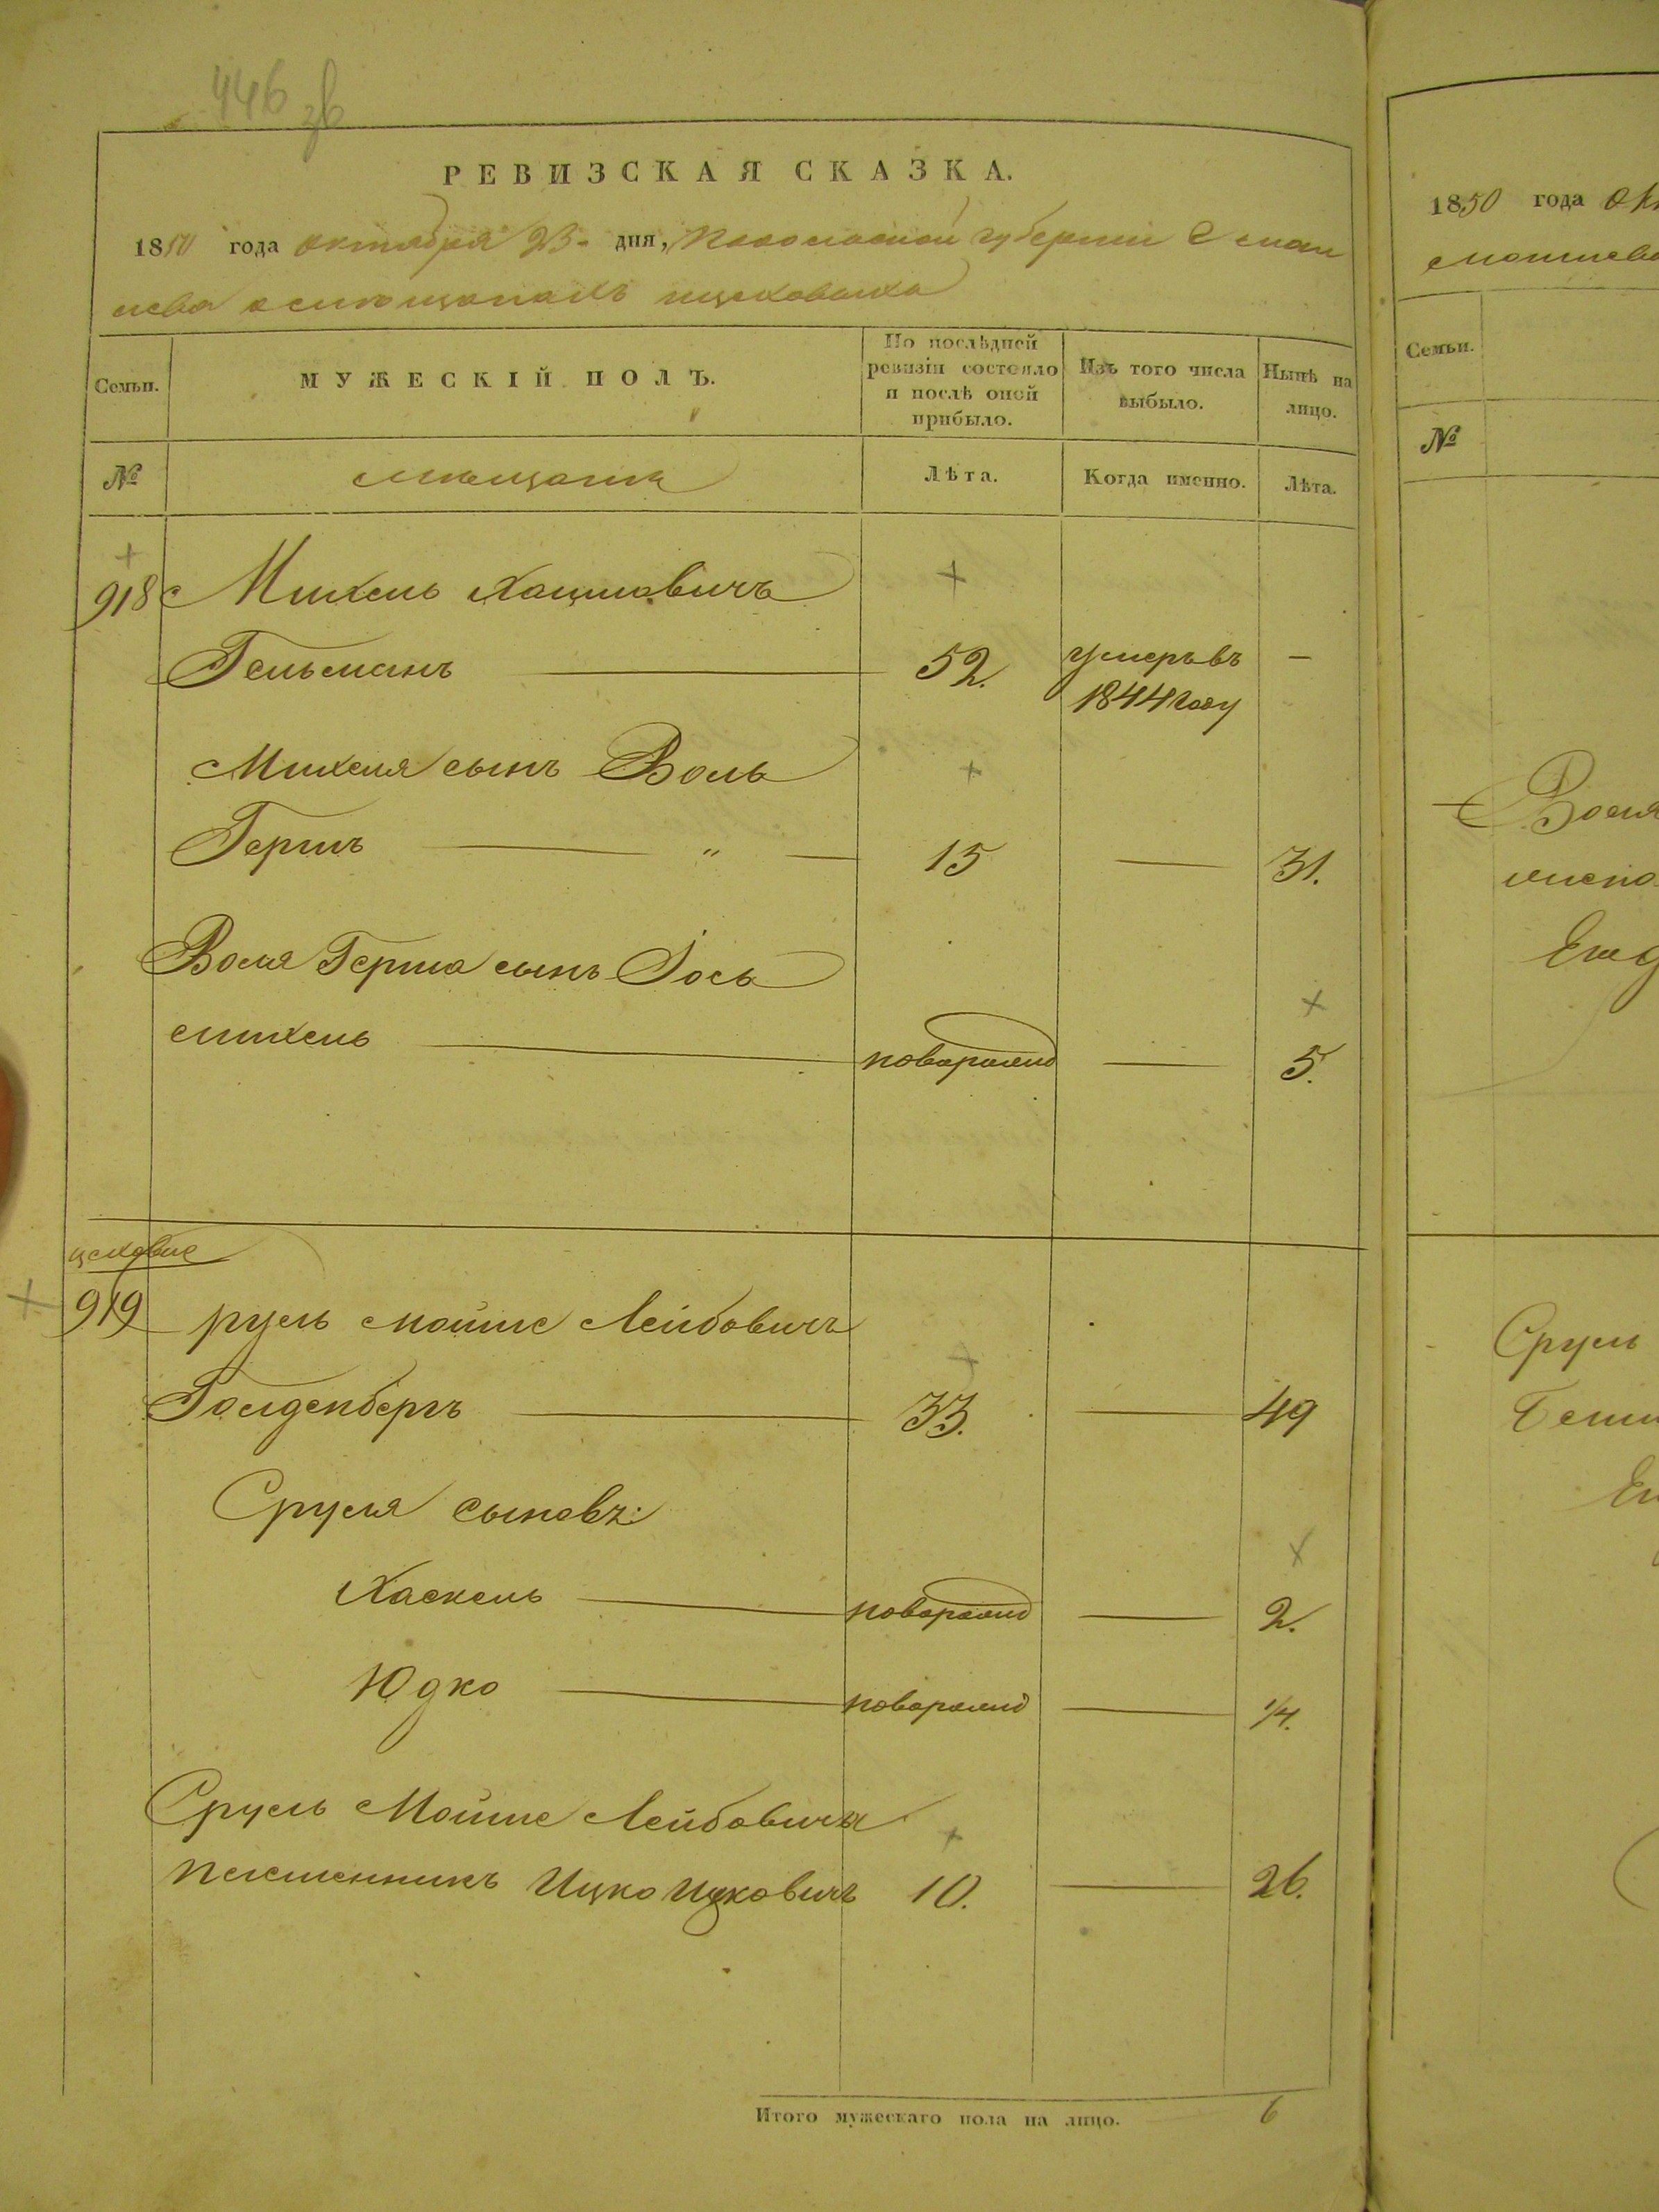 446 зв
РЕВИЗСКАЯ СКАЗКА.
1850 года октября 23 дня, Подольской губернии
мѣщанахъ
Семьи.
МУЖЕСКІЙ ПОЛЪ.
По послѣдней ревизіи состояло и послѣ оной прибыло.
Изъ того числа выбыло.
Нынѣ на лицо.
№
мѣщане
Лѣта.
Когда именно.
Лѣта.
918 Михель Хацкювичъ
Гельманъ 52. умеръ въ 1844 году —
Михеля сынъ Воль
Гершъ „ 15 31.
Воля Герша сынъ Іось
михель новорожд 5.
цеховые
919 руль Мойше Лейбовичъ
Голденбергъ 33. 49
Сруля сыновъ:
Хаскель новорожд 2.
Юдко новорожд 1/4.
Сруль Мойше Лейбовича
племенникъ Ицко Ицковичъ 10. 26.
Итого мужескаго пола на лицо. 6
1850 года Ок
Семьи.
№
Воля
Сруль